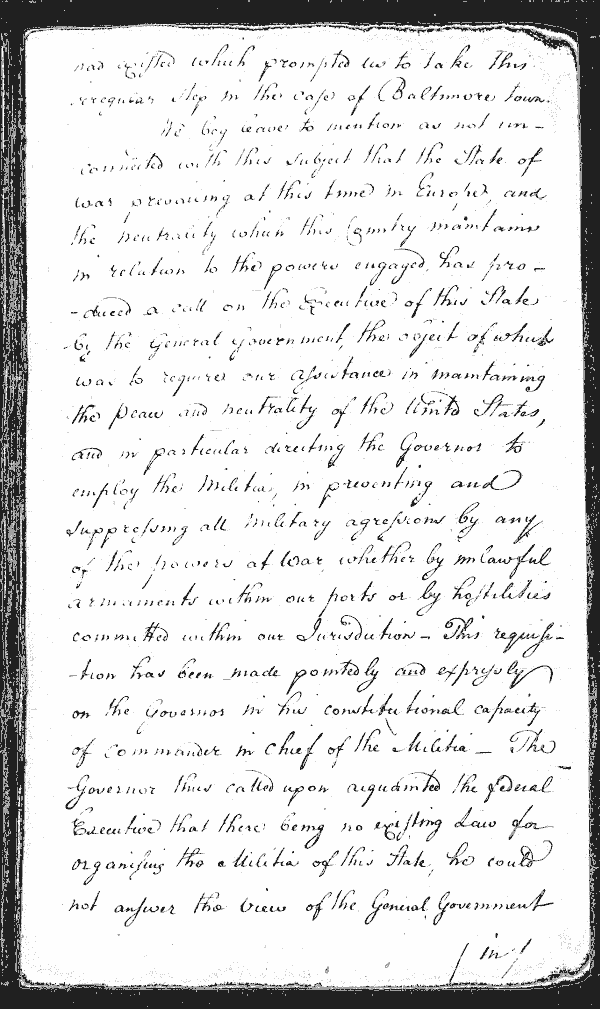 had existed which prompted us to take this
irregular step in the case of Baltimore town.
We beg leave to mention as not un-
connected with this subject that the State of
war prevailing at this time in Europe, and
the neutrality which this Country maintains
in relation to the powers engaged, has pro-
-duced a call on the Executive of this State
by the General Government, the object of which
was to require our assistance in maintaining
the peace and neutrality of the United States,
and in particular directing the Governor to
employ the Militia, in preventing and
suppressing all Military agressions by any
of the powers at War, whether by unlawful
armaments within our ports or by hostilities
committed within our Jurisdiction - This requisi-
-tion has been made pointedly and expressly
on the Governor in his constitutional capacity
of Commander in Chief of the Militia - The
Governor thus called upon acquainted the federal
Executive that there being no existing Law for
organising the Militia of this State, he could
not answer the view of the General Government
/ in /